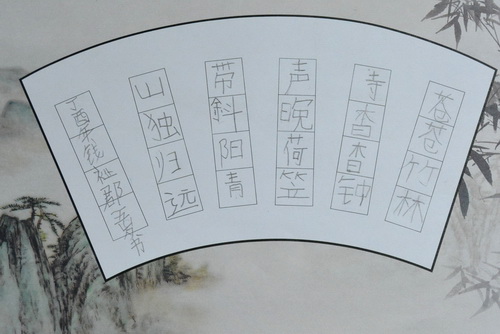 苍苍竹林
寺杳杳钟
声晚荷笠
带斜阳青
山独归远
丁酉年 书